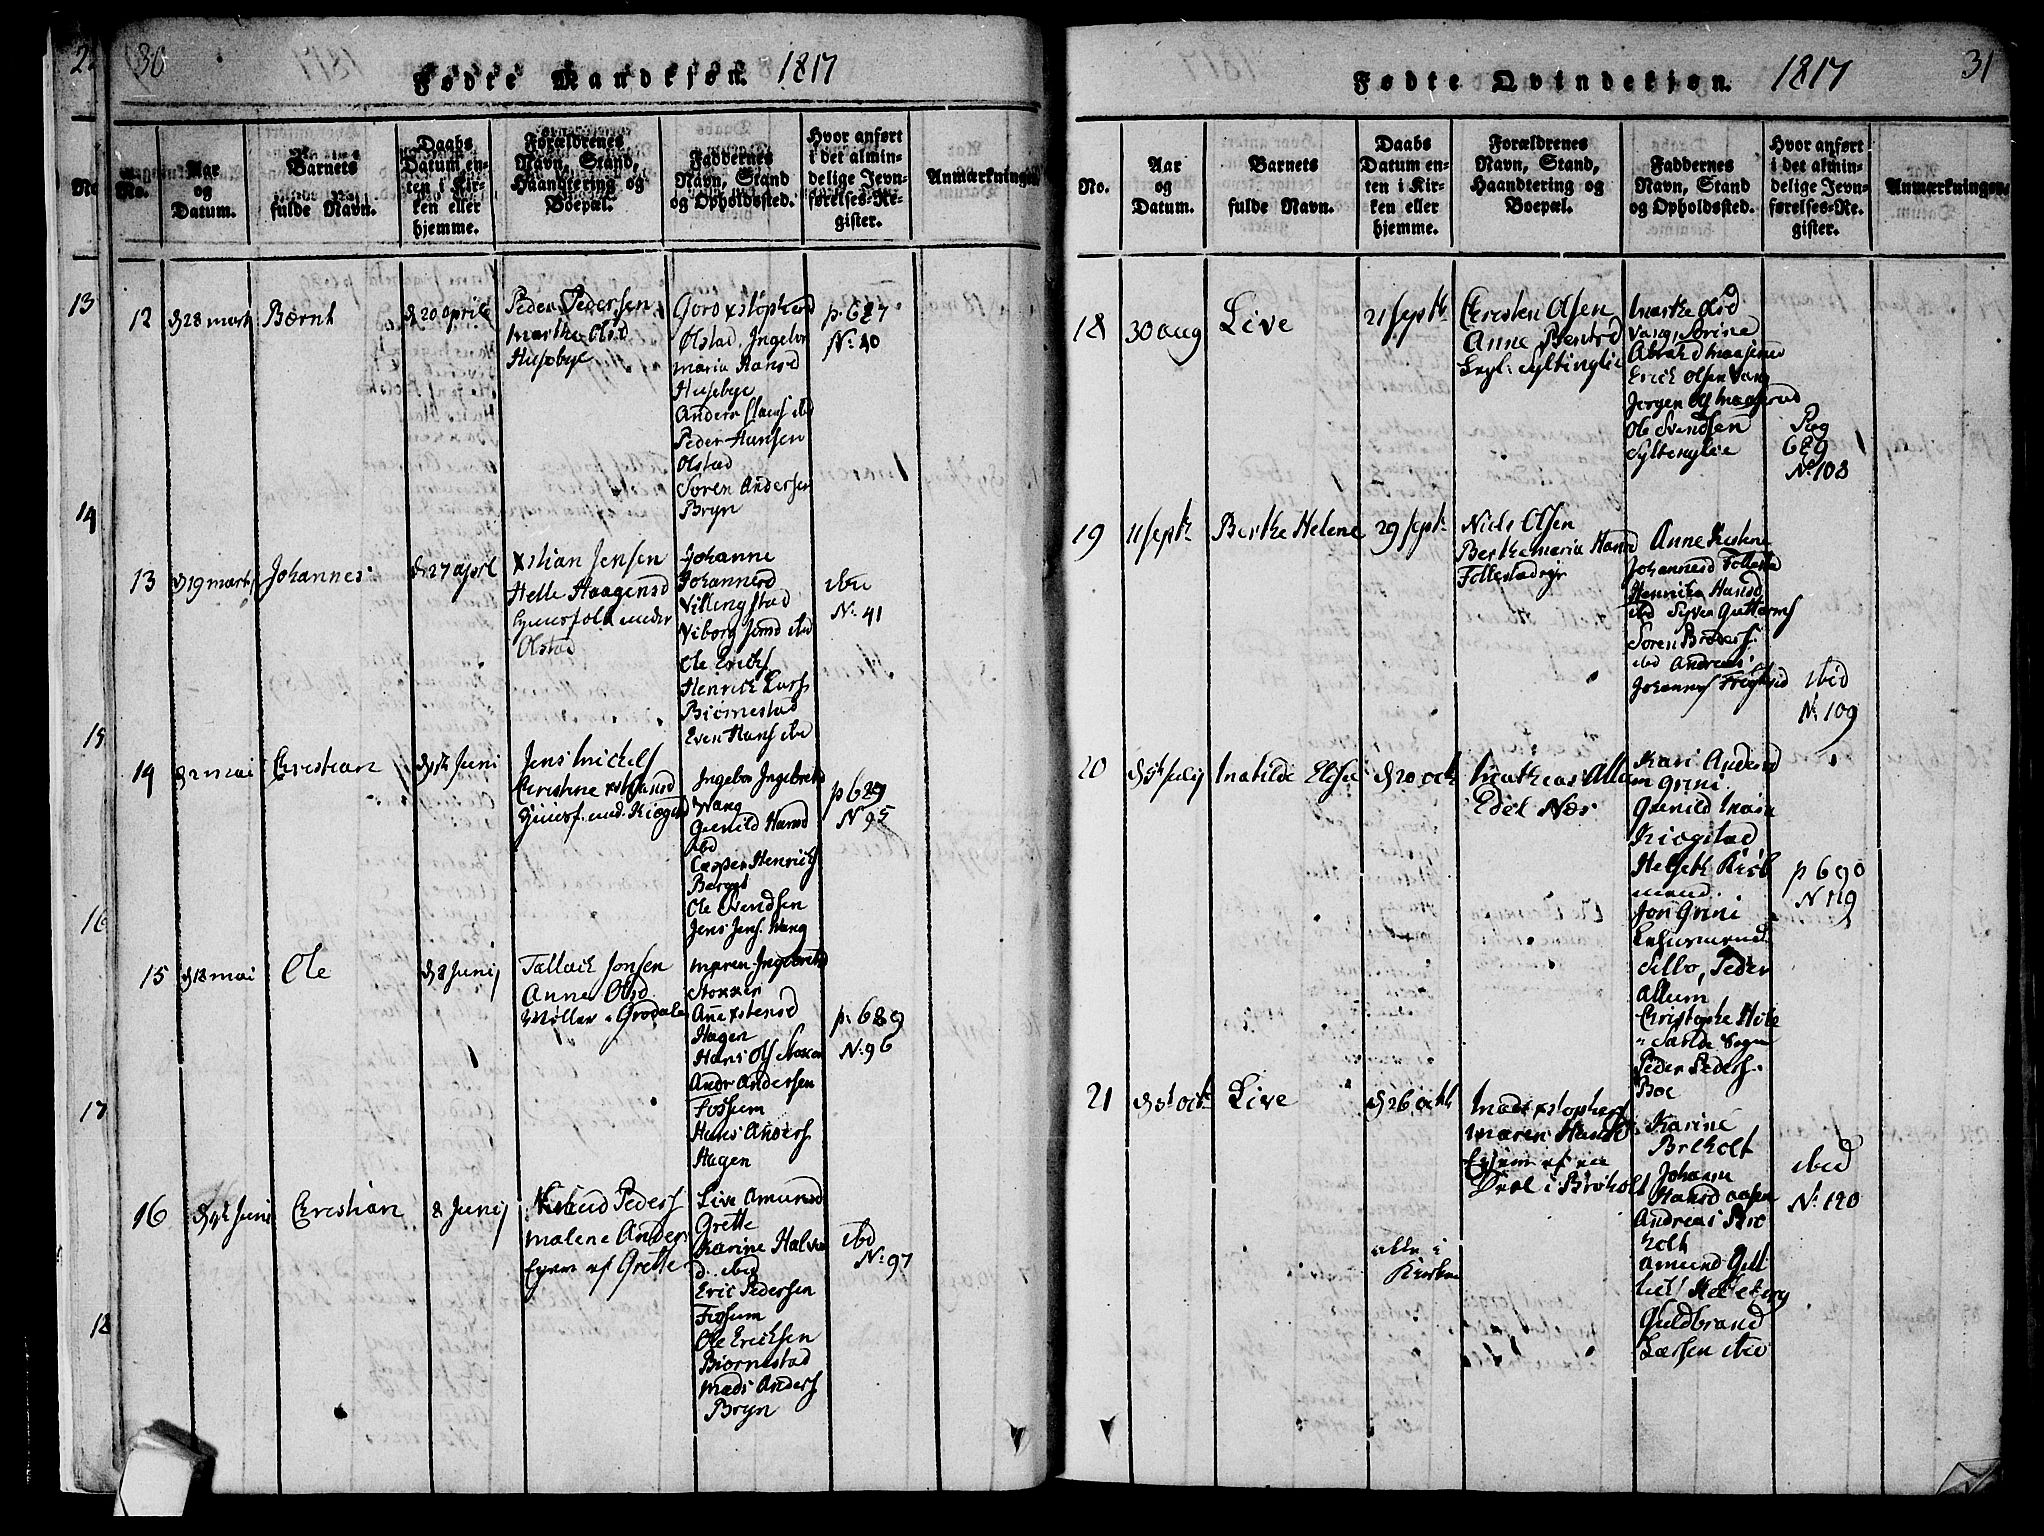 30
Fødte Mandkjøn. 1817
No.
Aar
og
Datum.
Barnets
fulde Navn.
Daabs
Datum en-
ten i Kir-
ken eller
hjemme.
Forældrenes
Navn, Stand,
Haandtering og
Boepæl.
Faddernes
Navn, Stand
og Opholdssted.
Hvor anført
i det almin-
delige Jevn-
førelses-Re-
gister.
Anmærkninger
12
d 28 marts
Bærnt
d 20 april
Peder Pedersen
Marthe Olsd
Husebye
Goro xstophersd
Olstad, Ingebor
Maria Hansd
Husebye
Anders Claus ibd
Peder Hansen
Olstad
Soren Andersen
Bryn
p. 687
N. 40
13
d 19 marts
Johannes
d 27 april
xstian Jensen
Helle Haagensd
under
Olstad
Johanne
Johannesd
Villingstad
Viborg Jensd ibd
Ole Ericks
Henrick Lars
Biørnestad
Even Hans ibd
ibid
N. 41
14
d 2 mai
Christian
Juni
Jens Michels
Christine xstiansd
Ingebor Ingebretsd
Wang
Gunild Hansd
ibd
Casper Henrichs
Berger
Ole Svendsen
Jens Jens. Wang
p 689
N 95
15
d 18 mai
Ole
d 8 Junij
Tallack Jonsen
Anne Olsd
Møller i Grodale
Maren Ingebretsd
Stokker
Ane xstensd
Hagen
Hans Ols
Andr Andersen
Fossum
Hans Anders
Hagen
p. 689
N. 96
16
Juni
Christian
8 Junij
Knud Peders
Malene Anders
Eyern af Grette
Live Amundsd
Grette
Karine Halvor
d. ibid
Eric Pedersen
Fossum
Ole Ericksen
Biørnestad
Mads Anders
Bryn
ibd
N. 97
31
Fødte Qvindekjøn. 1817
No.
Aar
og
Datum.
Barnets
fulde Navn.
Daabs
Datum en-
ten i Kir-
ken eller
hjemme.
Forældrenes
Navn, Stand,
Haandtering og
Boepæl.
Faddernes
Navn, Stand
og Opholdssted.
Hvor anført
i det almin-
delige Jevn-
førelses-Re-
gister.
Anmærkninger.
18
30 aug
Live
21 septb
Christen Olsen
Anne Berntsd
Syltinglie
Marthe Olsd
Vang, Sorine
Abrahd
Erick Olsen Vang
Jørgen Ols
Ole Svendsen
Syltenglie
Pag
689
N. 108
19
11 septb
Berthe Helene
29 septb
Niels Olsen
Berthe Maria Hansd
Follestad
Anne Kirstine
Johannesd Follestad
Henrika Hansd
ibd Syver Guttorms
Soren Broders.
ibd Andreas
Johannes
ibid
N. 109
20
d 5t July
Matilde Elise
d 20 octb
Mathias Allum
Edel Næs
Kari Andersd
Grini
Gunild Maria
Kiøgstad
Helseth Kiøb
mand.
Jon Grini
Lehnsmand
Selbo, Peder
Allum
Christophe Hole
Sande Sogn
Peder Peders.
Boe
p 690
N 119
21
d 5t octb
Live
d 26 octb
Mads xstophers
Maren Hansd
Eyern af en
Deel i Broholt
Karine
Breholt
Johanna
Hansd aasen
Andreas Bro
holt
Amund Gul
lich Helleberg
Guldbrand
Larsen ibid
ibid
N. 120
alle i
Kirken